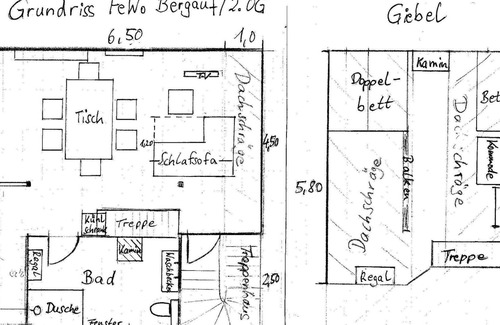 Grundriss FeWo Bergauf/2.OG
6,50
1,0
TV
Dachschräge
Tisch
4,50
Schlafsofa
Kühl
schrank
Treppe
Kamin
Regal
Bad
Waschbecken
Treppenhaus
2,50
Dusche
Fenster
Giebel
Kamin
Doppel-
bett
Bet
Dachschräge
Kommode
5,80
Balken
Dachschräge
Treppe
Regal